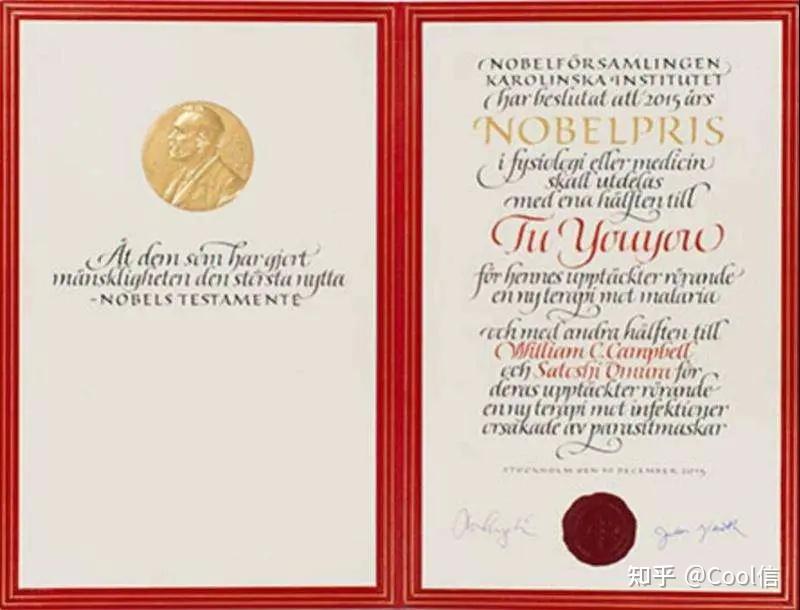 Åt dem som har gjort
mänskligheten den största nytta
-NOBELS TESTAMENTE
NOBELFÖRSAMLINGEN
KAROLINSKA INSTITUTET
har beslutat att 2015 års
NOBELPRIS
i fysiologi eller medicin
skall utdelas
med ena hälften till
Tu Youyou
för hennes upptäckter rörande
en ny terapi mot malaria
och med andra hälften till
William C. Campbell
och Satoshi Ōmura för
deras upptäckter rörande
en ny terapi mot infektioner
orsakade av parasitmaskar
STOCKHOLM DEN 10 DECEMBER 2015
知乎 @Cool信